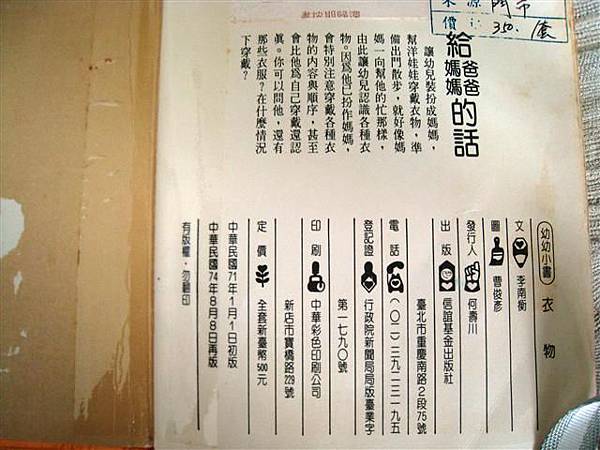 350.
給爸爸媽媽的話
讓幼兒裝扮成媽媽,
幫洋娃娃穿戴衣物,準
備出門散步,就好像媽
媽一向幫他的忙那樣,
由此讓幼兒認識各種衣
物。因爲他已扮作媽媽,
會特別注意穿戴各種衣
物的內容與順序,甚至
會比他爲自己穿戴還認
眞。你可以問他,還有
那些衣服?在什麼情況
下穿戴?
幼幼小書 衣物
文 李南衡
圖 曹俊彥
發行人 何壽川
出版 信誼基金出版社
臺北市重慶南路2段75號
電話 (〇二)三九二三一九五
登記證 行政院新聞局局版臺業字
第一七九〇號
印刷 中華彩色印刷公司
新店市寶橋路229號
定價 全套新臺幣500元
中華民國71年1月1日初版
中華民國74年8月8日再版
有版權・勿翻印